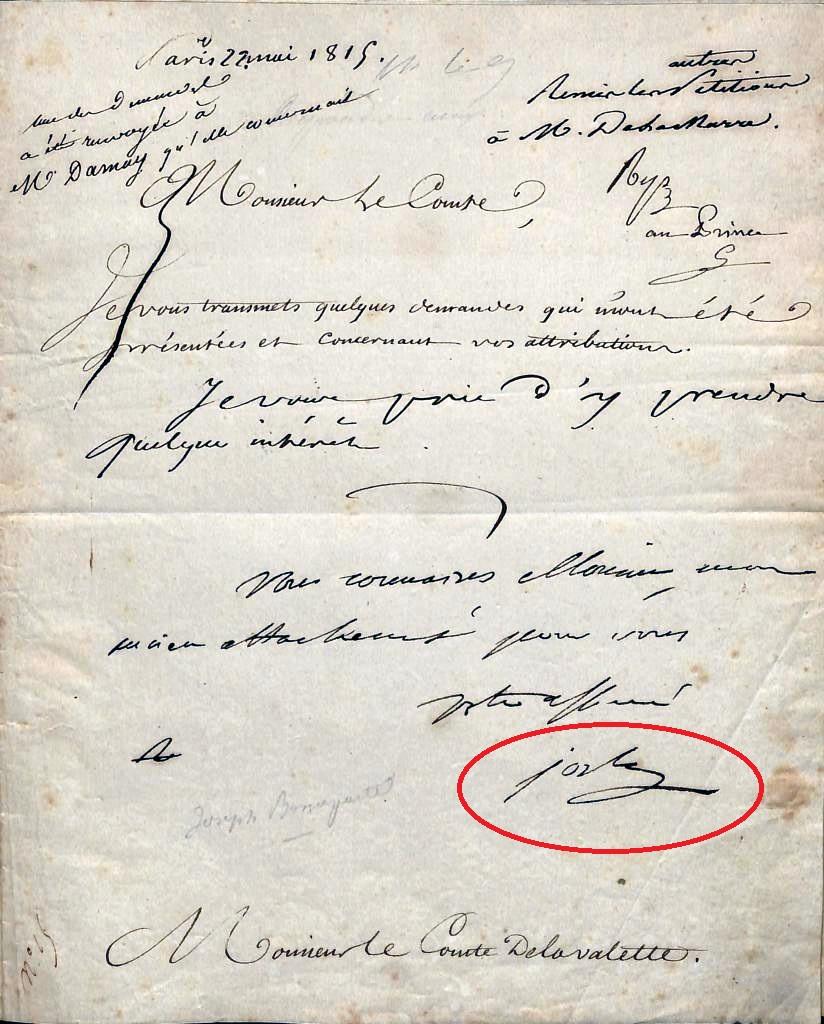 Paris 22 mai 1815.
autres
remis les Pétitions
à M. Delacharre.
une des demandes
a été renvoyée à
Mr Darnay qu'elle concernait
Monsieur Le Comte,
Rep
au Prince
Je vous transmets quelques demandes qui m'ont été
présentées et concernant vos attributions.
Je vous prie d'y prendre
quelque intérêt.
Vous connaissez Monsieur mon
ancien attachement pour vous
votre affectionné
joseph
Joseph Bonaparte
Monsieur le Comte Delavalette.
n° 15